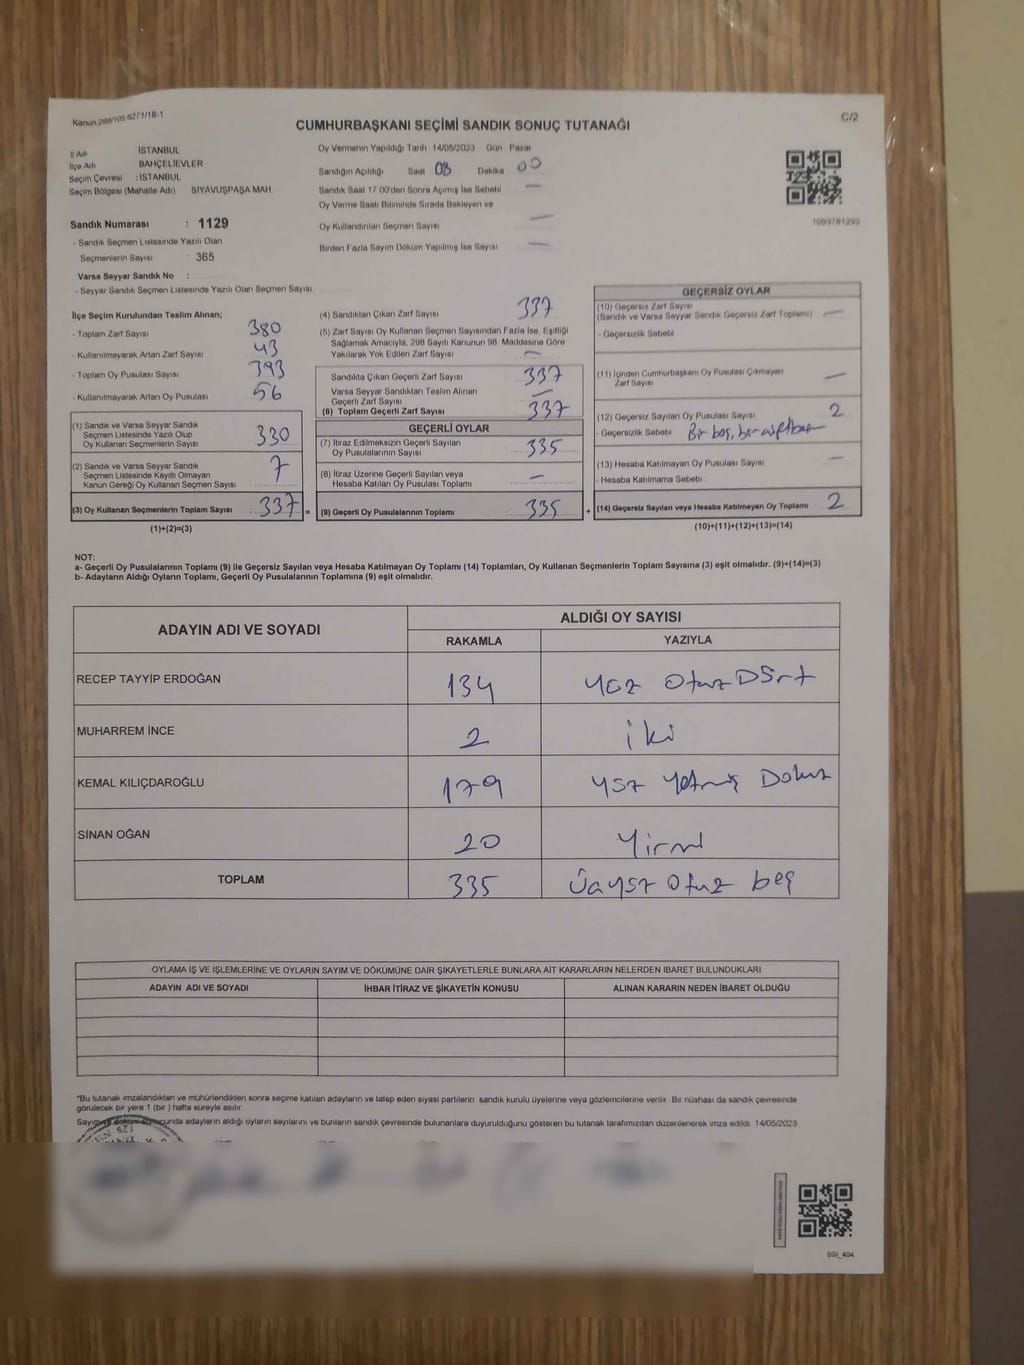 Kanun 298/109.6271/18-1
C/2
CUMHURBAŞKANI SEÇİMİ SANDIK SONUÇ TUTANAĞI
İl Adı İSTANBUL
İlçe Adı BAHÇELİEVLER
Seçim Çevresi : İSTANBUL
Seçim Bölgesi (Mahalle Adı) SİYAVUŞPAŞA MAH.
Sandık Numarası : 1129
- Sandık Seçmen Listesinde Yazılı Olan
Seçmenlerin Sayısı 365
Varsa Seyyar Sandık No :
- Seyyar Sandık Seçmen Listesinde Yazılı Olan Seçmen Sayısı
Oy Vermenin Yapıldığı Tarih 14/05/2023 Gün Pazar
Sandığın Açıldığı Saat 08 Dakika 00
Sandık Saat 17.00'den Sonra Açımış İse Sebebi —
Oy Verme Saati Bitiminde Sırada Bekleyen ve
Oy Kullandırılan Seçmen Sayısı —
Birden Fazla Sayım Döküm Yapılmış İse Sayısı —
1009781293
İlçe Seçim Kurulundan Teslim Alınan;
- Toplam Zarf Sayısı 380
- Kullanılmayarak Artan Zarf Sayısı 43
- Toplam Oy Pusulası Sayısı 393
- Kullanılmayarak Artan Oy Pusulası 56
(1) Sandık ve Varsa Seyyar Sandık
Seçmen Listesinde Yazılı Olup
Oy Kullanan Seçmenlerin Sayısı 330
(2) Sandık ve Varsa Seyyar Sandık
Seçmen Listesinde Kayıtlı Olmayan
Kanun Gereği Oy Kullanan Seçmen Sayısı 7
(3) Oy Kullanan Seçmenlerin Toplam Sayısı 337 =
(1)+(2)=(3)
(4) Sandıktan Çıkan Zarf Sayısı 337
(5) Zarf Sayısı Oy Kullanan Seçmen Sayısından Fazla İse, Eşitliği
Sağlamak Amacıyla, 298 Sayılı Kanunun 98. Maddesine Göre
Yakılarak Yok Edilen Zarf Sayısı —
Sandıkta Çıkan Geçerli Zarf Sayısı 337
Varsa Seyyar Sandıktan Teslim Alınan
Geçerli Zarf Sayısı —
(6) Toplam Geçerli Zarf Sayısı 337
GEÇERLİ OYLAR
(7) İtiraz Edilmeksizin Geçerli Sayılan
Oy Pusulalarının Sayısı 335
(8) İtiraz Üzerine Geçerli Sayılan veya
Hesaba Katılan Oy Pusulası Toplamı —
(9) Geçerli Oy Pusulalarının Toplamı 335 +
GEÇERSİZ OYLAR
(10) Geçersiz Zarf Sayısı
(Sandık ve Varsa Seyyar Sandık Geçersiz Zarf Toplamı) —
- Geçersizlik Sebebi
(11) İçinden Cumhurbaşkanı Oy Pusulası Çıkmayan
Zarf Sayısı —
(12) Geçersiz Sayılan Oy Pusulası Sayısı 2
- Geçersizlik Sebebi Bir boş, bir
(13) Hesaba Katılmayan Oy Pusulası Sayısı —
- Hesaba Katılmama Sebebi
(14) Geçersiz Sayılan veya Hesaba Katılmayan Oy Toplamı 2
(10)+(11)+(12)+(13)=(14)
NOT:
a- Geçerli Oy Pusulalarının Toplamı (9) ile Geçersiz Sayılan veya Hesaba Katılmayan Oy Toplamı (14) Toplamları, Oy Kullanan Seçmenlerin Toplam Sayısına (3) eşit olmalıdır. (9)+(14)=(3)
b- Adayların Aldığı Oyların Toplamı, Geçerli Oy Pusulalarının Toplamına (9) eşit olmalıdır.
ADAYIN ADI VE SOYADI
ALDIĞI OY SAYISI
RAKAMLA YAZIYLA
RECEP TAYYİP ERDOĞAN 134 yüz Otuz Dört
MUHARREM İNCE 2 iki
KEMAL KILIÇDAROĞLU 179 yüz yetmiş Dokuz
SİNAN OĞAN 20 Yirmi
TOPLAM 335 Üçyüz Otuz beş
OYLAMA İŞ VE İŞLEMLERİNE VE OYLARIN SAYIM VE DÖKÜMÜNE DAİR ŞİKAYETLERLE BUNLARA AİT KARARLARIN NELERDEN İBARET BULUNDUKLARI
ADAYIN ADI VE SOYADI İHBAR İTİRAZ VE ŞİKAYETİN KONUSU ALINAN KARARIN NEDEN İBARET OLDUĞU
*Bu tutanak imzalandıktan ve mühürlendikten sonra seçime katılan adayların ve talep eden siyasi partilerin sandık kurulu üyelerine veya gözlemcilerine verilir. Bir nüshası da sandık çevresinde
görülecek bir yere 1 (bir) hafta süreyle asılır.
Sayım ve döküm sonucunda adayların aldığı oyların sayılarını ve bunların sandık çevresinde bulunanlara duyurulduğunu gösteren bu tutanak tarafımızdan düzenlenerek imza edildi. 14/05/2023
SGI_404